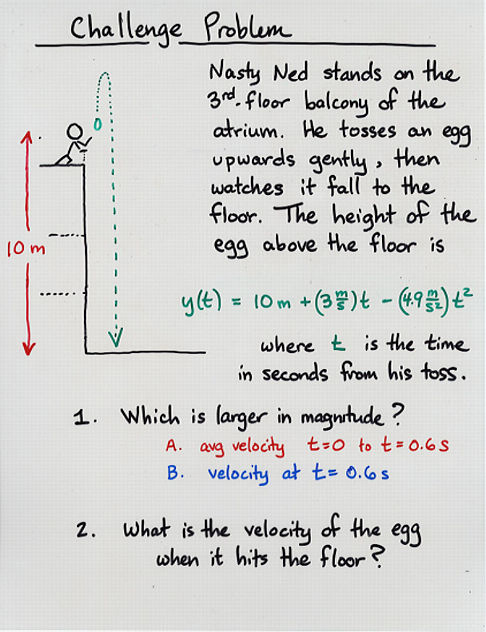 Challenge Problem
Nasty Ned stands on the
3rd-floor balcony of the
atrium. He tosses an egg
upwards gently, then
watches it fall to the
floor. The height of the
egg above the floor is
10 m
y(t) = 10 m + (3 m/s) t - (4.9 m/s²) t²
where t is the time
in seconds from his toss.
1. Which is larger in magnitude?
A. avg velocity t=0 to t=0.6 s
B. velocity at t= 0.6 s
2. What is the velocity of the egg
when it hits the floor?